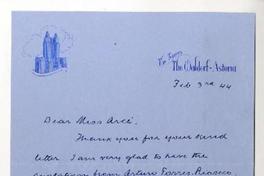 The Waldorf-Astoria
Feb 3rd 44
Dear Miss Arcé:
Thank you for your kind
letter I am very glad to have the
quotation from Arturo Torres-Rioseco